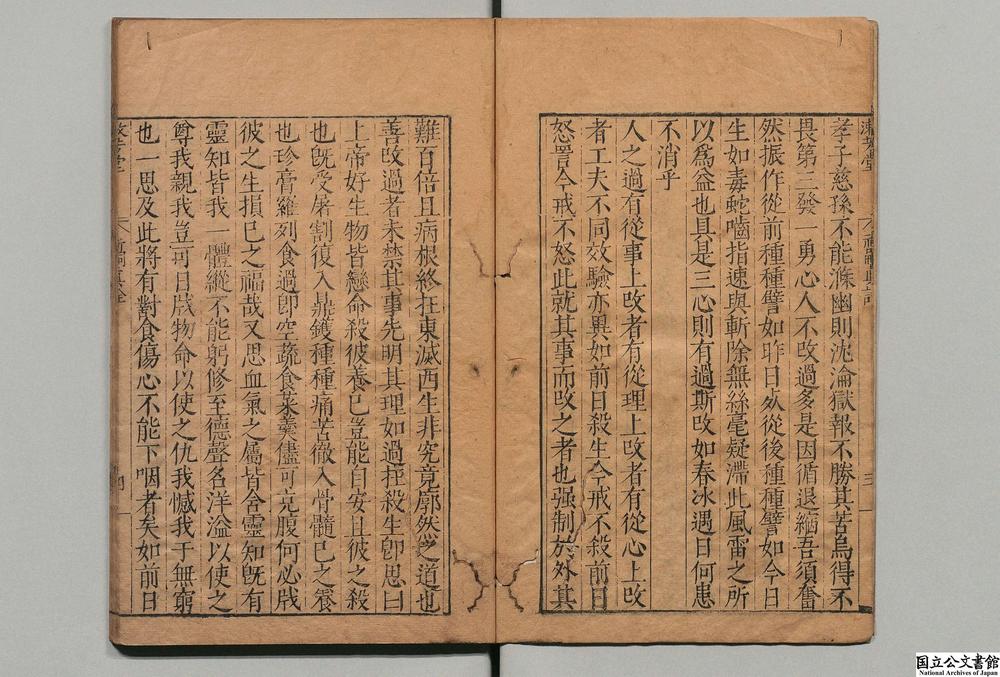 孝子慈孫不能滌幽則沈淪獄報不勝其苦烏得不
畏第三發一勇心人不改過多是因循退縮吾須奮
然振作從前種種譬如昨日死從後種種譬如今日
生如毒蛇嚙指速與斬除無絲毫疑滯此風雷之所
以爲益也具是三心則有過斯改如春冰遇日何患
不消乎
人之過有從事上改者有從理上改者有從心上改
者工夫不同效驗亦異如前日殺生今戒不殺前日
怒詈今戒不怒此就其事而改之者也强制於外其
難百倍且病根終在東滅西生非究竟廓然之道也
善改過者未禁其事先明其理如過在殺生卽思曰
上帝好生物皆戀命殺彼養已豈能自安且彼之殺
也旣受屠割復入鼎鑊種種痛苦徹入骨髓已之養
也珍膏羅列食過卽空蔬食菜羹儘可充腹何必戕
彼之生損已之福哉又思血氣之屬皆含靈知旣有
靈知皆我一體縱不能躬修至德聲名洋溢以使之
尊我親我豈可日戕物命以使之仇我憾我于無窮
也一思及此將有對食傷心不能下咽者矣如前日
国立公文書館
National Archives of Japan